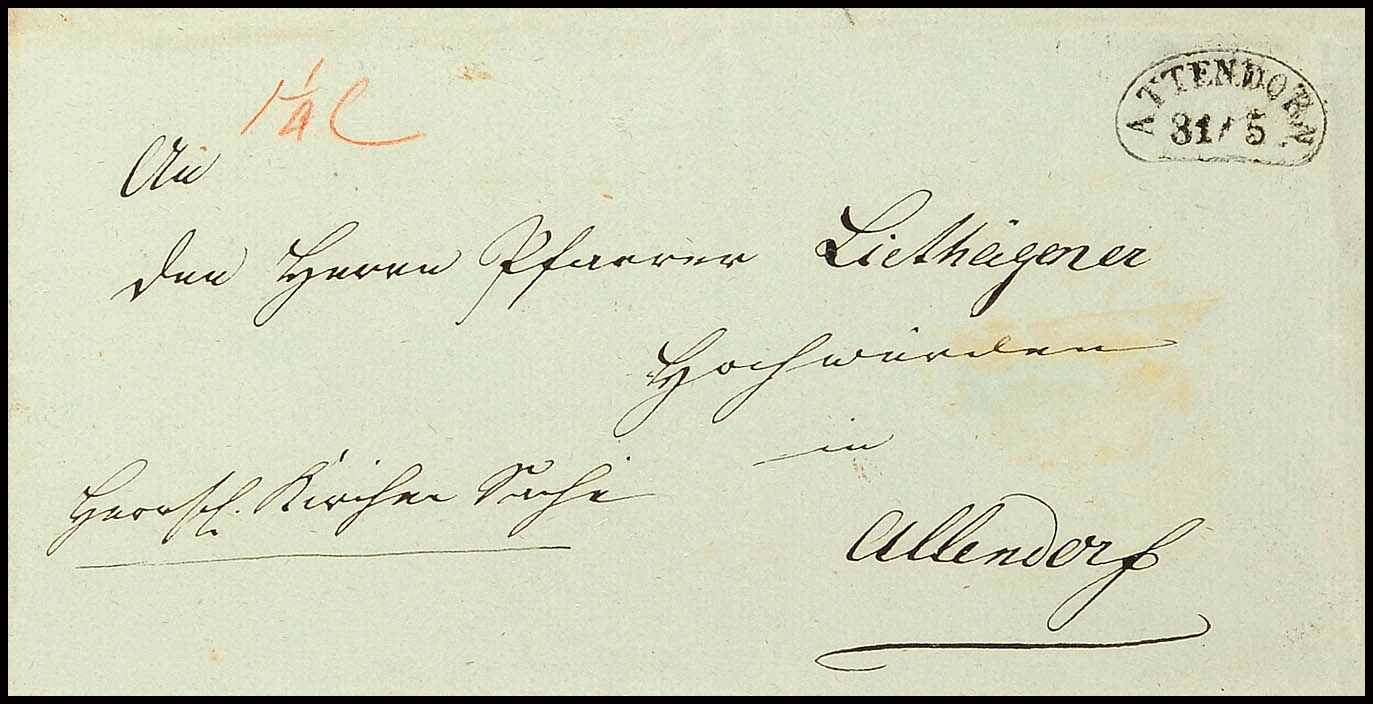 1 1/4 L
ATTENDORN
31/5
An
den Herrn Pfarrer Liethägener
Hochwürden
in
Herrsch. Kirchen Sache
Allendorf